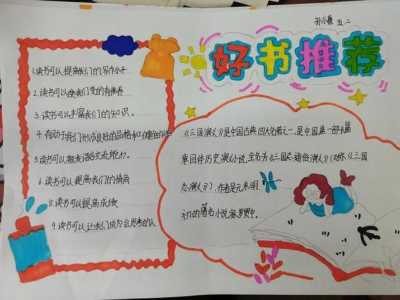 孙小晨 五.二
好书推荐
1.读书可以提高我们的写作水平
2.读书可以使我们变的有修养
3.读书可以丰富我们的知识。
4.有助于我们形成良好的品格和
5.读书可以提高语言交流能力。
6.读书可以提高我们的情商
8.读书可以提高成绩
9.读书可以让我们成为会思考的人
《三国演义》是中国古典四大名著之一,是中国第一部长篇
章回体历史演义小说,全名为《三国志通俗演义》(又称《三国
志演义》),作者是元末明
初的著名小说家罗贯中。